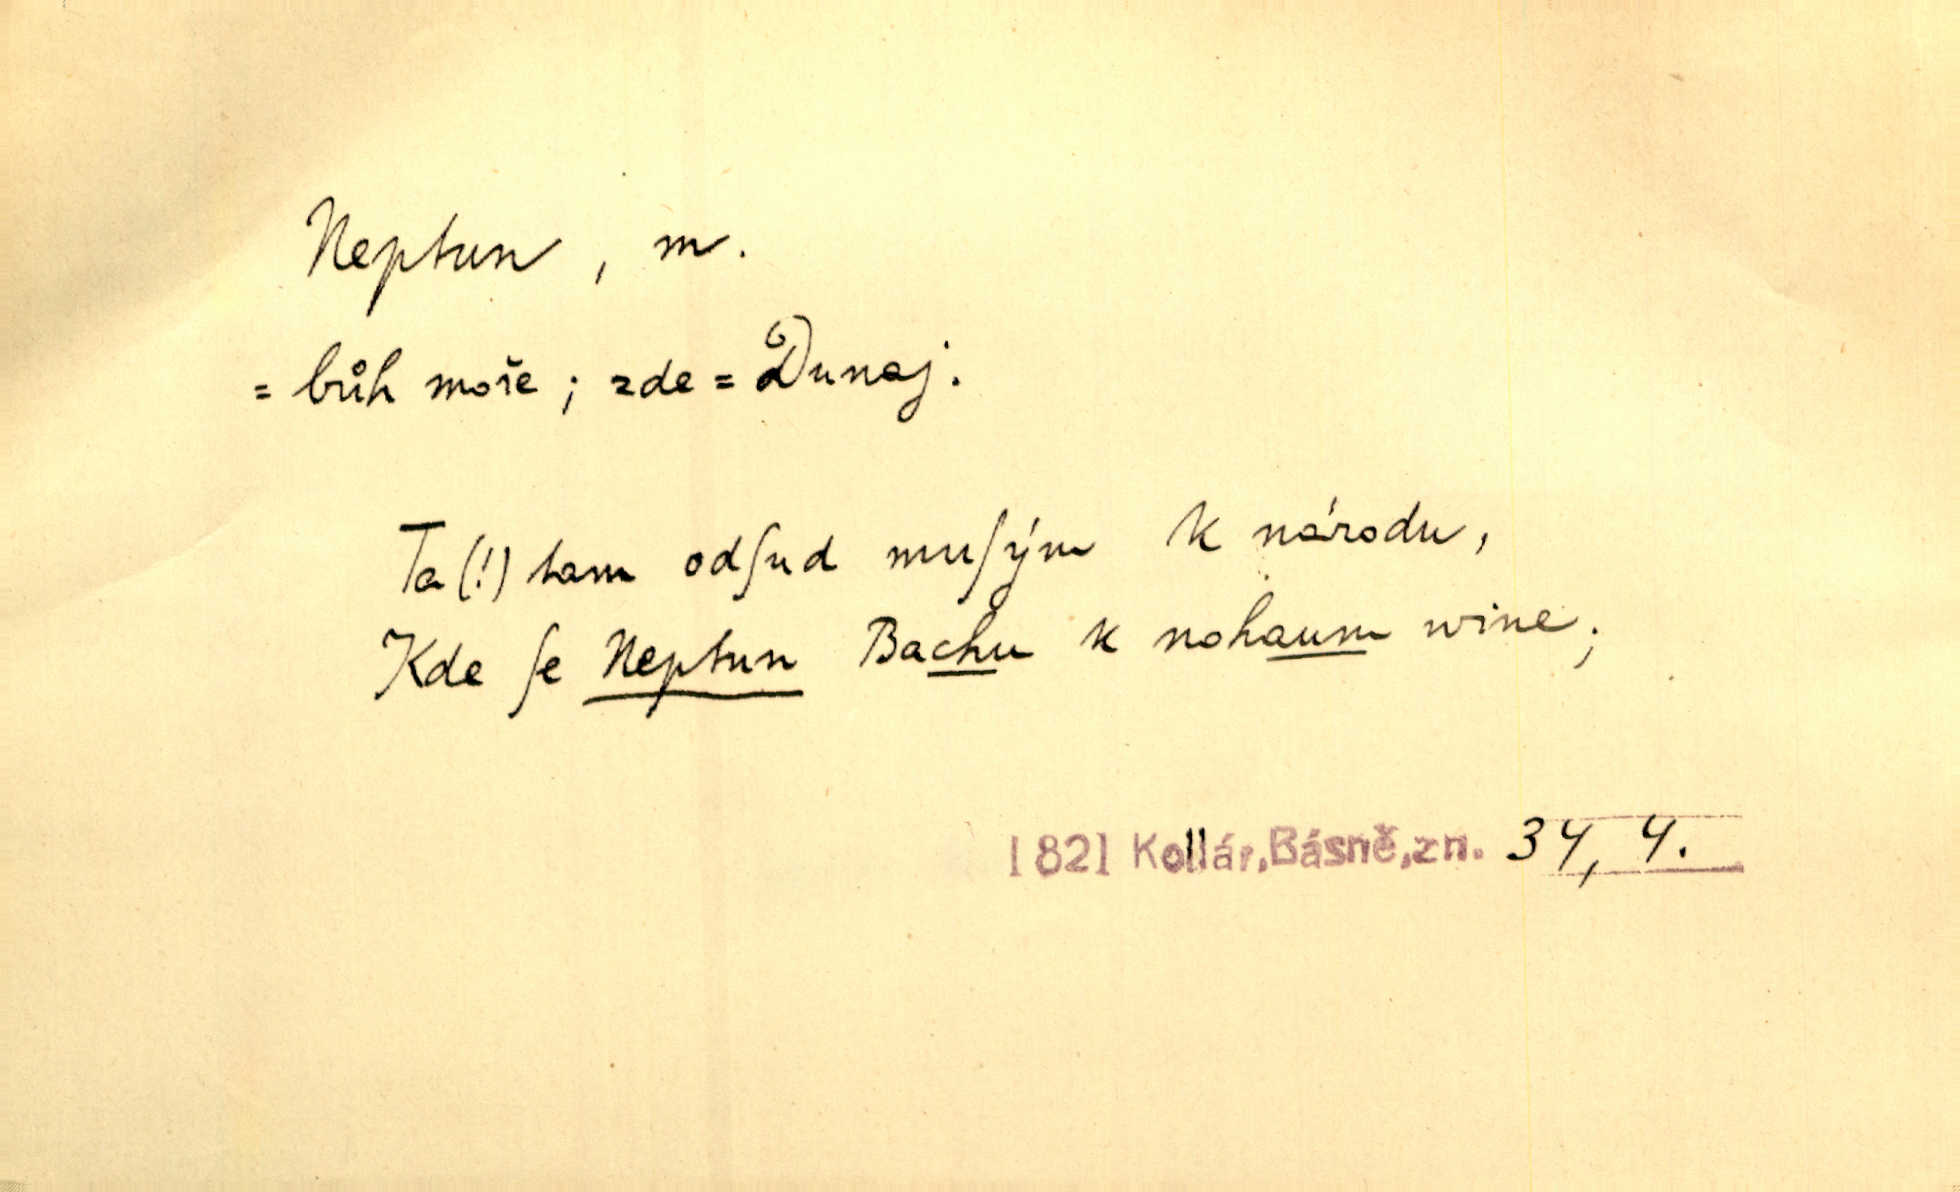 Neptun, m.
= bůh moře; zde = Dunaj.
Ta(!) tam odſud muſým k národu,
Kde ſe Neptun Bachu k nohaum wine;
1821 Kollár, Básně, zn. 34, 4.